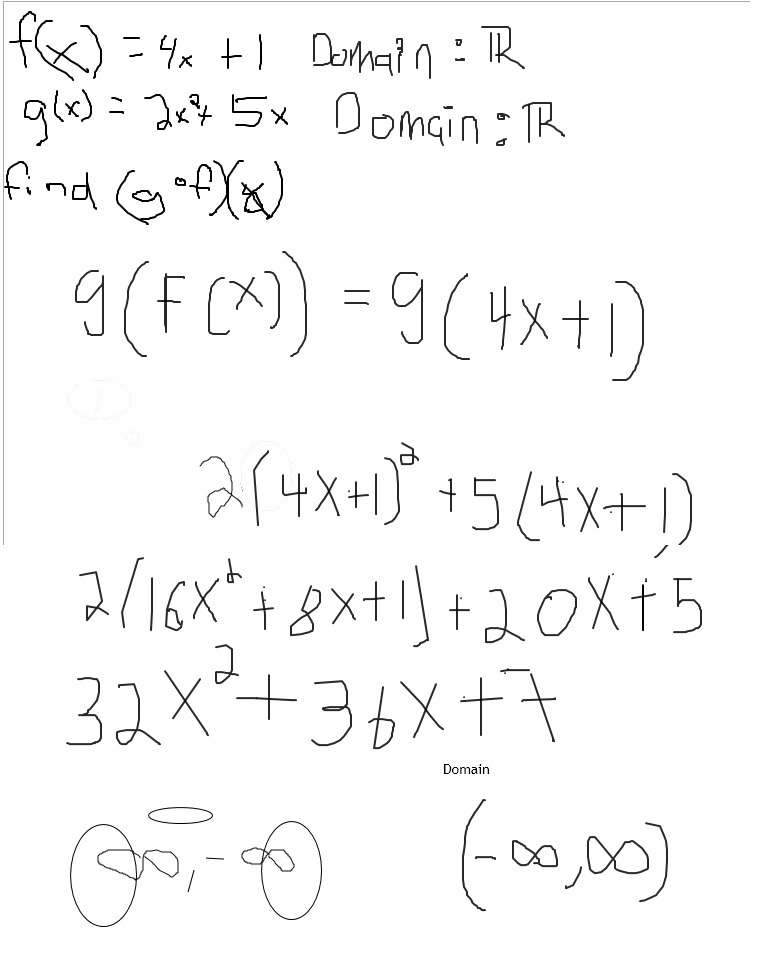 f(x) = 4x + 1 Domain : ℝ
g(x) = 2x² + 5x Domain : ℝ
find (g∘f)(x)
g(F(x)) = g(4x+1)
2(4x+1)² + 5(4x+1)
2(16x² + 8x+1) + 20x+5
32x² + 36x+7
Domain
∞,-∞ (-∞,∞)